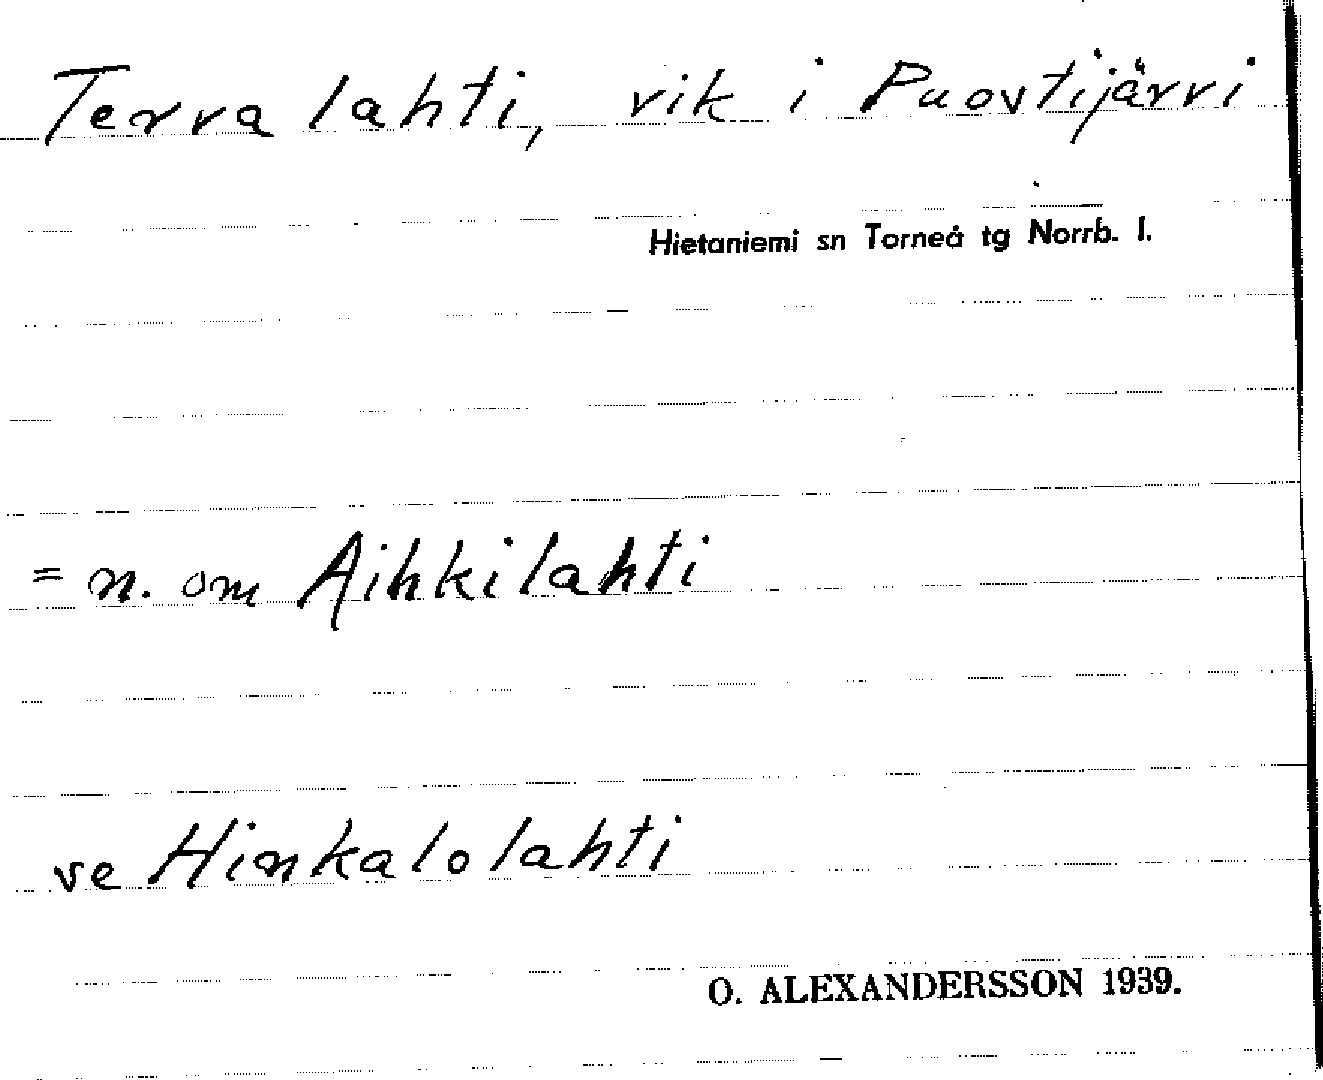 Terva lahti, vik i Puostijärvi
Hietaniemi sn Torneå tg Norrb. l.
= n. om Aihkilahti
se Hinkalolahti
O. ALEXANDERSSON 1939.